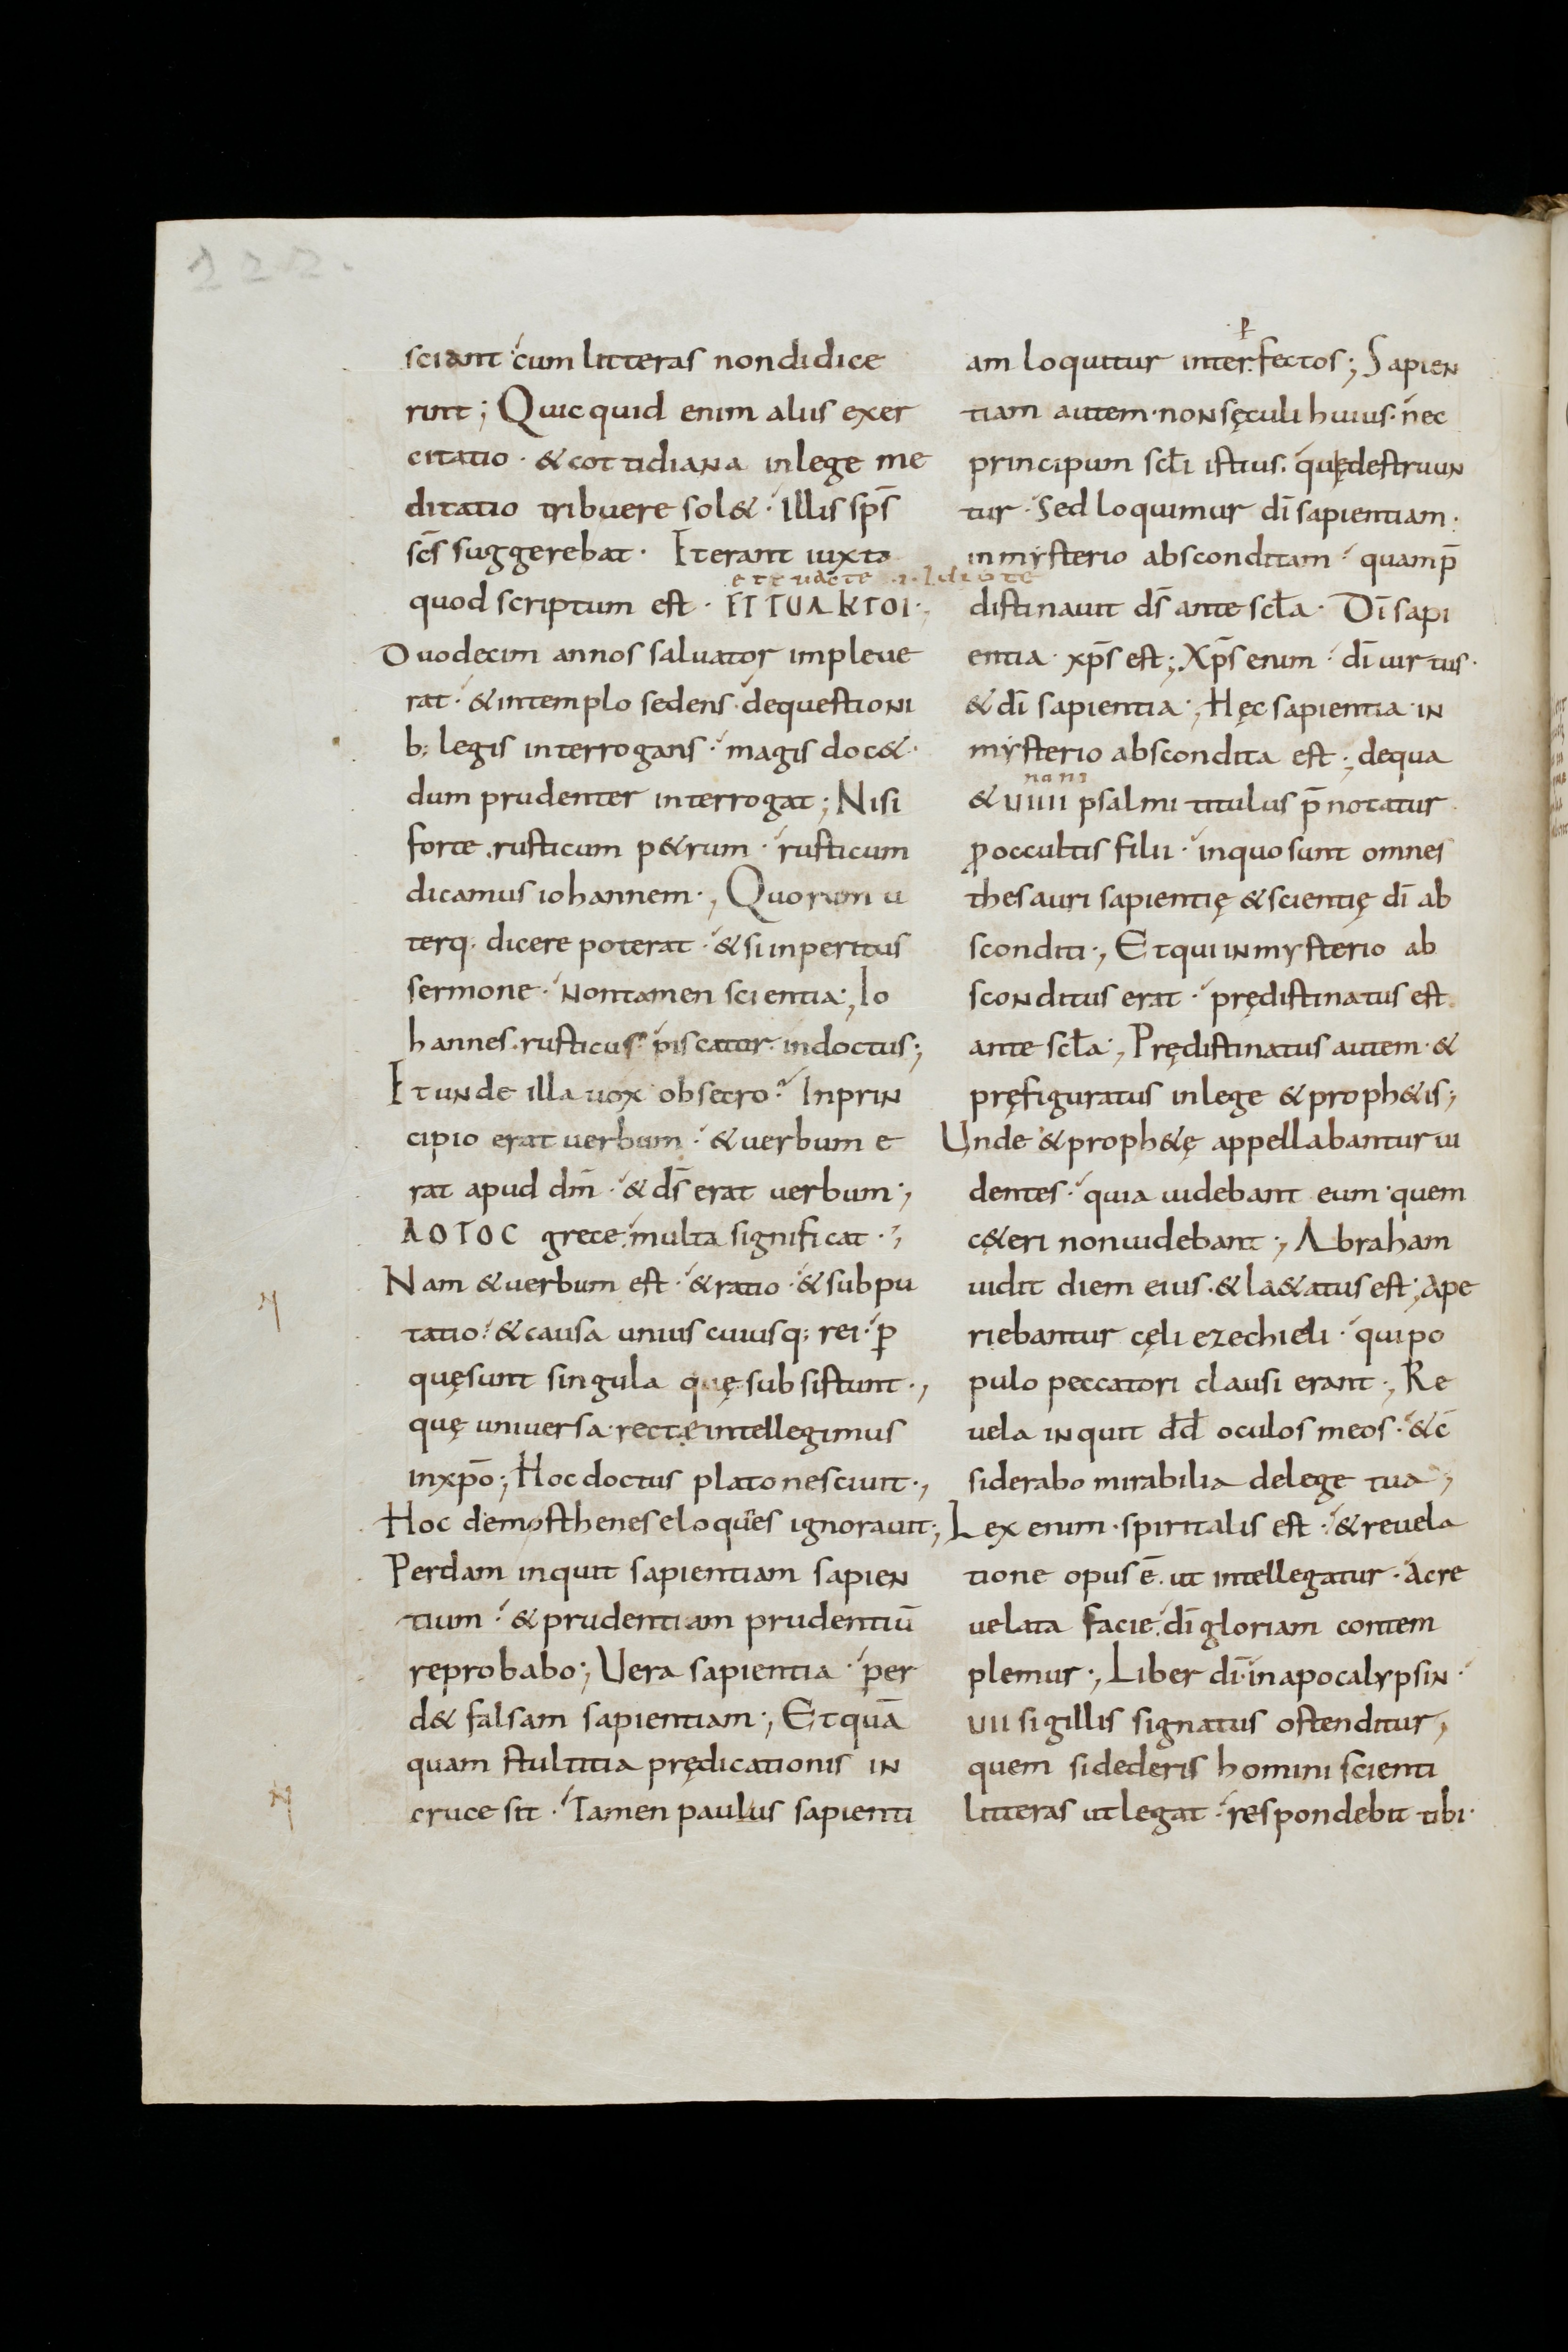 222.
sciant · cum litteras non didice
rint ; Quicquid enim aliis exer
citatio · & cottidiana in lege me
ditatio tribuere sol& · illis sp̄s
sc̄s suggerebat · Et erant iuxta
quod scriptum est ·
Duodecim annos salvator impleue
rat · & in templo sedens · de questioni
b; legis interrogans · magis doc& ·
dum prudenter interrogat ; Nisi
forte rusticum p&rum · rusticum
dicamus iohannem ·, Quorum u
terq· dicere poterat · & si inperitus
sermone · non tamen scientia ·, Io
hannes · rusticus · piscator · indoctus ;
Et unde illa uox obsecro ? In prin
cipio erat uerbum · & uerbum e
rat apud dm̄ · & ds̄ erat uerbum ·,
ΛΟΓΟC grece · multa significat ·,
Nam & uerbum est · & ratio · & subpu
tatio · & causa unius cuiusq; rei · ꝑ
quę sunt singula quę subsistunt ·,
quę universa · rectę intellegimus
in xp̄o ·, Hoc doctus plato nesciuit ·,
Hoc demosthenes eloquēs ignorauit ·,
Perdam inquit sapientiam sapien
tium · & prudentiam prudentiū
reprobabo ·, Uera sapientia · per
d& falsam sapientiam ·, Et quā
quam stultitia prędicationis in
cruce sit · Tamen paulus sapienti
p
am loquitur inter · fectos ; Sapien
tiam autem · non sęculi huius · nec
principum scl̄i istius · quę destruun
tur · Sed loquimur dī sapientiam ·
in mysterio absconditam · quam p̄
distinauit ds̄ ante scl̄a · Dī sapi
entia · xp̄s est ·, Xp̄s enim · dī uirtus ·
& dī sapientia ·, Hęc sapientia in
mysterio abscondita est ·, de qua
nani
& uiiii psalmi titulus p̄notatur
ꝓ occultis filii · in quo sunt omnes
thesauri sapientię & scientię dī ab
sconditi ·, Et qui in mysterio ab
sconditus erat · prędistinatus est
ante scl̄a ·, Prędistinatus autem · &
pręfiguratus in lege & proph&is ;
Unde & proph&ę appellabantur ui
dentes · quia uidebant eum · quem
c&eri non uidebant ·, Abraham
uidit diem eius · & la&atus est ·, Ape
riebantur cęli ezechieli · qui po
pulo peccatori clausi erant ·, Re
uela inquit dd̄ oculos meos · & c̄
siderabo mirabilia de lege tua ·,
Lex enim · spiritalis est · & reuela
tione opus ē · ut intellegatur · Ac re
uelata facie · dī gloriam contem
plemur ·, Liber dī · in apocalypsin ·
uii sigillis signatus ostenditur,
quem si dederis homini scienti
litteras ut legat · respondebit tibi ·